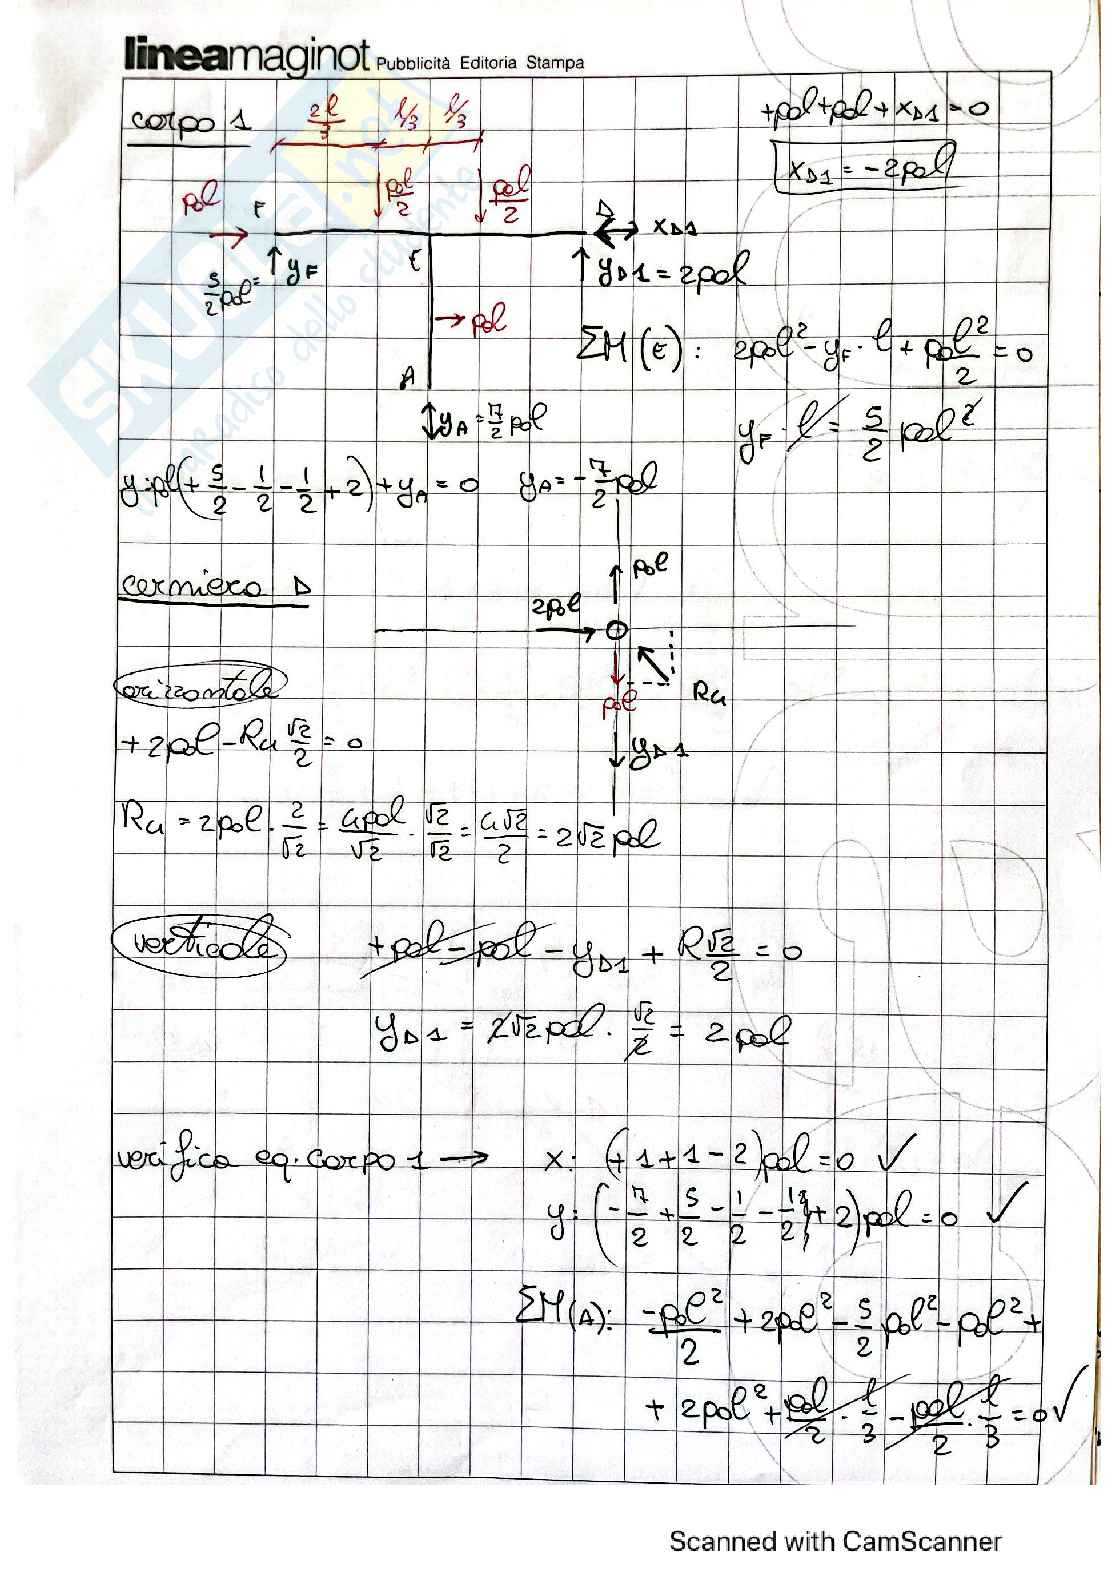 lineamaginot Pubblicità Editoria Stampa
corpo 1
2l/3 l/3 l/3
+pol+pol+xD1=0
xD1=-2pol
pol F pol/2 pol/2 D xD1
5/2 pol= yF E yD1=2pol
pol
ΣM(E): 2pol²-yF·l+pol²/2=0
A
yA=7/2 pol
yF·l=5/2 pol²
y:pol(+5/2-1/2-1/2+2)+yA=0 yA=-7/2 pol
cerniera D
pol
2pol
pol
R4
yD1
orizzontale
+2pol-R4 √2/2=0
R4=2pol·2/√2=4pol/√2·√2/√2=4√2/2=2√2pol
verticale
+pol-pol-yD1+R√2/2=0
yD1=2√2pol·√2/2=2pol
verifica eq. corpo 1 → x: (+1+1-2)pol=0 ✓
y: (-7/2+5/2-1/2-1/2+2)pol=0 ✓
ΣM(A): -pol²/2+2pol²-5/2pol²-pol²+
+2pol²+pol/2·l/3-pol/2·l/3=0✓
Scanned with CamScanner
SKUOLA.net